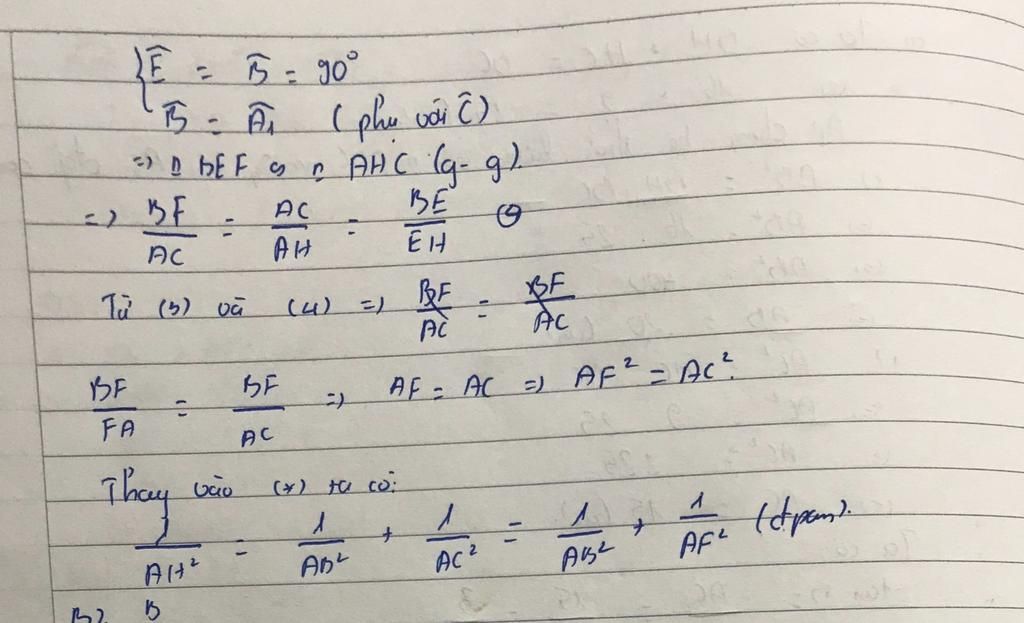 { Ê = B̂ = 90°
B̂ = Â₁ (phụ với Ĉ)
=> Δ BEF ∽ Δ AHC (g-g).
=> BF/AC = AC/AH = BE/EH (4)
Từ (3) và (4) => BF/AC = BF/AC
BF/FA = BF/AC => AF = AC => AF² = AC².
Thay vào (*) ta có:
1/AH² = 1/AB² + 1/AC² = 1/AB² + 1/AF² (đpcm).
B2. B